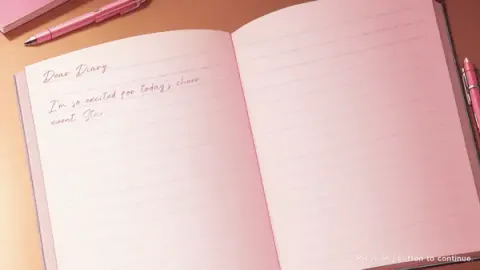 Dear Diary
I'm so excited for today's cheer
event. Sta
button to continue.